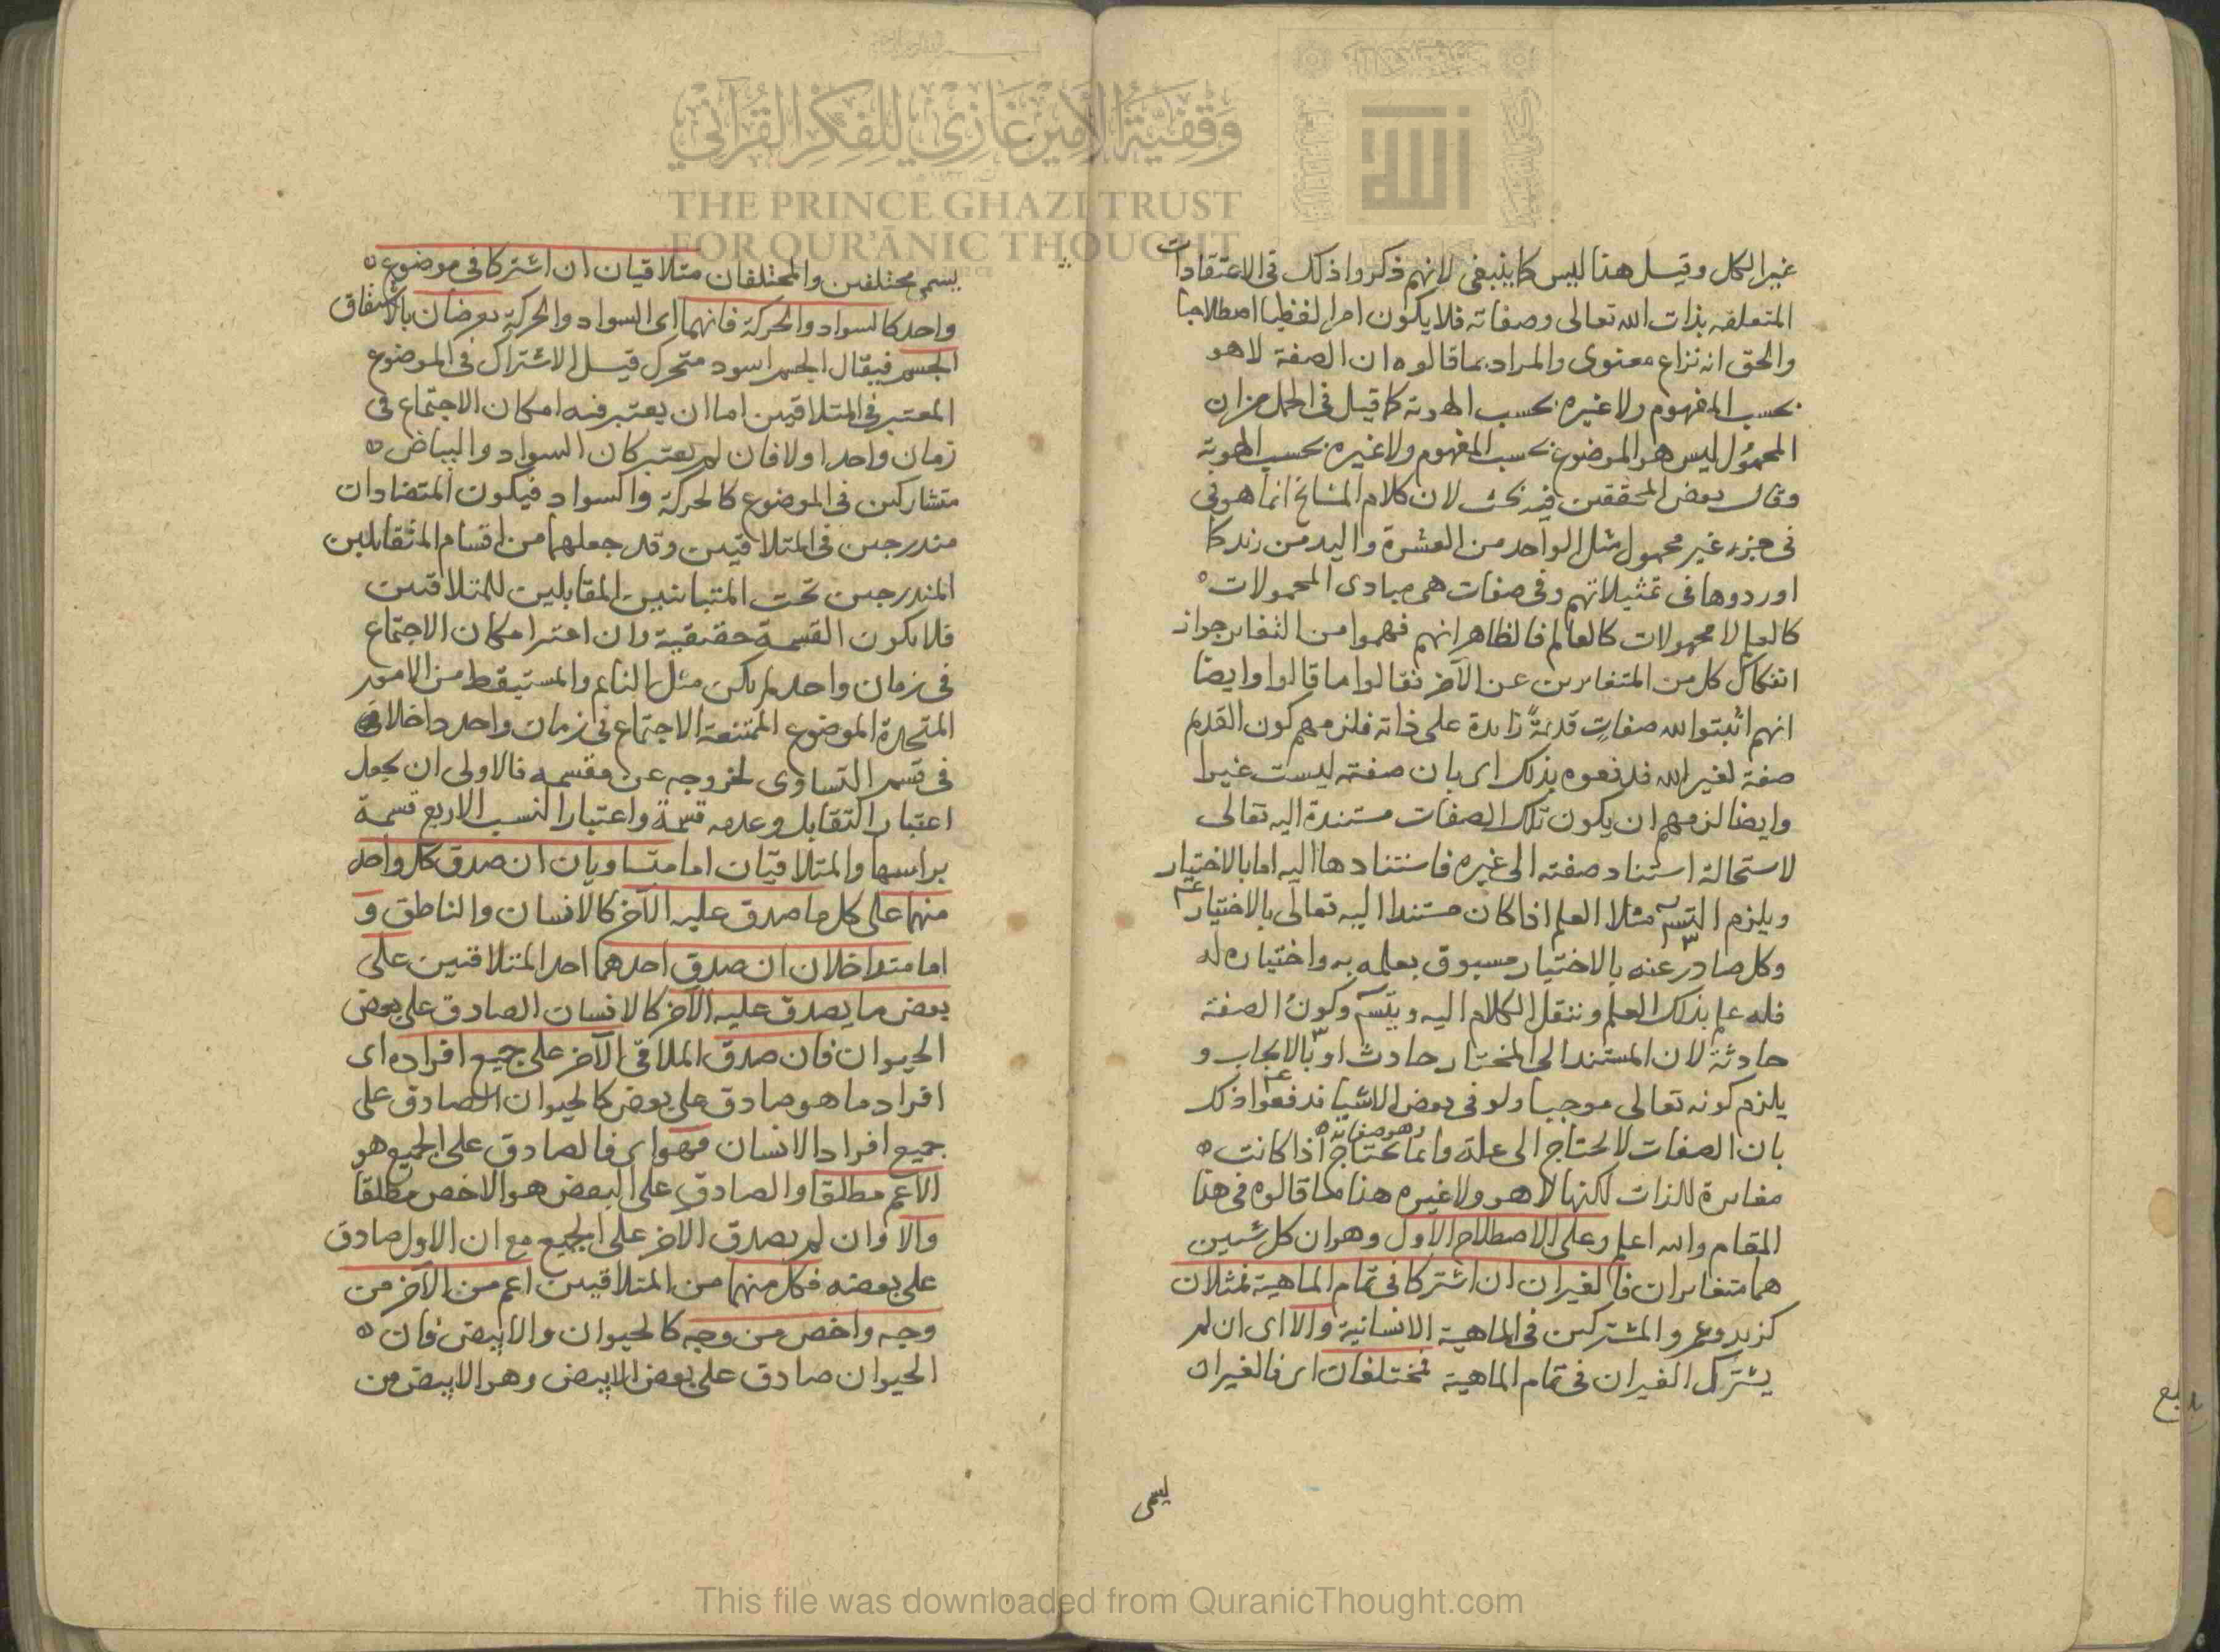 غير الكل وقيل هذا ليس كما ينبغى لانهم ذكروا ذلك فى الاعتقادات
المتعلقه بذات الله تعالى وصفاته فلا يكون امرا لفظيا اصطلاحيا
والحق انه نزاع معنوى والمراد بما قالوه ان الصفة لا هو
بحسب المفهوم ولا غيره بحسب الهوية كما قيل فى الحمل من ان
المحمول ليس هو الموضوع بحسب المفهوم ولا غيره بحسب الهوية
وقال بعض المحققين فيه بحث لان كلام المشايخ انما هو فى
فى جزء غير محمول مثل الواحد من العشرة واليد من زيد كما
اوردوها فى تمثيلاتهم وفى صفات هى مبادى المحمولات
كالعلم لا محمولات كالعالم فالظاهر انهم فهموا من التغاير جواز
انفكاك كل من المتغايرين عن الآخر فقالوا ما قالوا وايضا
انهم اثبتوا لله صفات قديمة زايدة على ذاته فلزمهم كون القدم
صفة لغير الله فدفعوه بذلك اى بان صفته ليست غيرا
وايضا لزمهم ان يكون تلك الصفات مستندة اليه تعالى
لاستحالة استناد صفته الى غيره فاستنادها اليه اما بالاختيار
ويلزم التسـ مثلا العلم اذا كان مستندا اليه تعالى بالاختيار
وكل صادر عنه بالاختيار مسبوق بعلمه به واختياره له
فله علم بذلك العلم وننقل الكلام اليه ويتسـ وكون الصفة
حادثة لان المستند الى المختار حادث او بالايجاب و
يلزم كونه تعالى موجبا ولو فى بعض الاشيا فدفعوا ذلك
بان الصفات لا تحتاج الى علة وانما تحتاج اذا كانت
مغايرة للذات لكنها لا هو ولا غيره هذا ما قالوه فى هذا
المقام والله اعلم وعلى الاصطلاح الاول وهو ان كل شيئين
هما متغايران فالغيران ان اشتركا فى تمام الماهية فمثلان
كزيد وعمرو المشتركين فى الماهية الانسانية والا اى ان لم
يشترك الغيران فى تمام الماهية فمختلفان اى فالغيران
يسمى
يسمى مختلفين والمختلفان متلاقيان ان اشتركا فى موضوع
واحد كالسواد والحركة فانهما اى السواد والحركة يعرضان بالاتفاق
الجسم فيقال الجسم اسود متحرك قيل الاشتراك فى الموضوع
المعتبر فى المتلاقيين اما ان يعتبر فيه امكان الاجتماع فى
زمان واحد اولا فان لم يعتبر كان السواد والبياض
متشاركين فى الموضوع كالحركة والسواد فيكون المتضادان
مندرجين فى المتلاقيين وقد جعلهما من اقسام المتقابلين
المندرجين تحت المتباينين المقابلين للمتلاقيين
فلا يكون القسمة حقيقية وان اعتبر امكان الاجتماع
فى زمان واحد لم يكن مثل النايم والمستيقظ من الامور
المتحدة الموضوع الممتنعة الاجتماع فى زمان واحد داخلا فى
فى قسم التساوى لخروجه عن مقسمه فالاولى ان يجعل
اعتبار التقابل وعدمه قسمة واعتبار النسب الاربع قسمة
براسها والمتلاقيان اما متساويان ان صدق كل واحد
منهما على كل ما صدق عليه الآخر كالانسان والناطق و
اما متداخلان ان صدق احدهما احد المتلاقيين على
بعض ما يصدق عليه الآخر كالانسان الصادق على بعض
الحيوان فان صدق الملاقى الآخر على جميع افراده اى
افراد ما هو صادق على بعض كالحيوان الصادق على
جميع افراد الانسان فهو اى فالصادق على الجميع هو
الاعم مطلقا والصادق على البعض هو الاخص مطلقا
والا وان لم يصدق الآخر على الجميع مع ان الاول صادق
على بعضه فكل منهما من المتلاقيين اعم من الآخر من
وجه واخص من وجه كالحيوان والابيض فان
الحيوان صادق على بعض الابيض وهو الابيض من
وقفية الأمير غازي للفكر القرآني
THE PRINCE GHAZI TRUST
FOR QUR'ĀNIC THOUGHT
This file was downloaded from QuranicThought.com